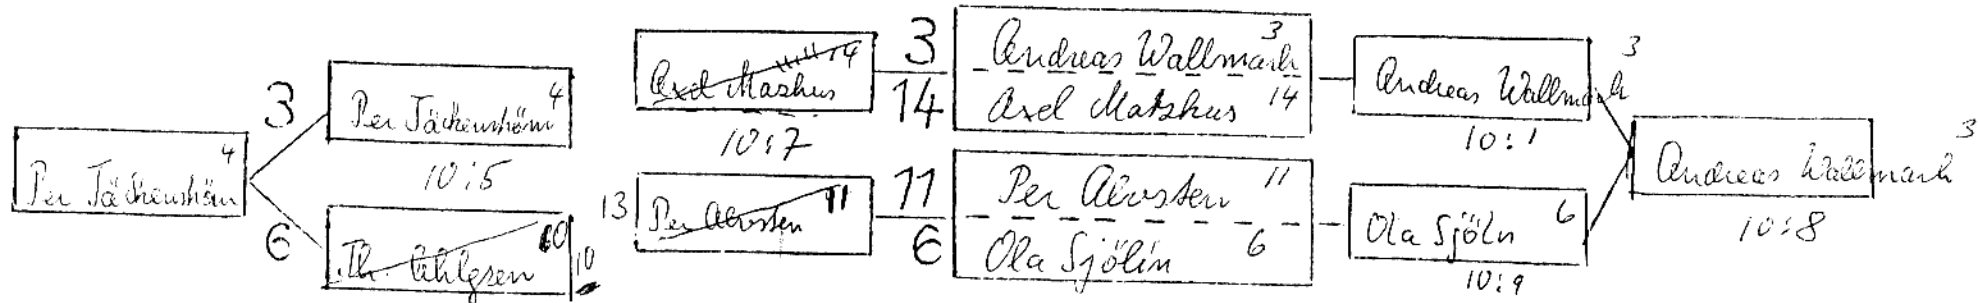 3
4
Per Täckenström
4
Per Täckenström
10:5
6
10
10
Axel Mashus 14
10:7
13
Per Alvsten 11
3
14
11
6
Andreas Wallmark 3
Axel Matshus 14
Per Alvsten 11
Ola Sjölin 6
Andreas Wallmark 3
10:1
Ola Sjöln 6
10:9
Andreas Wallmark 3
10:8